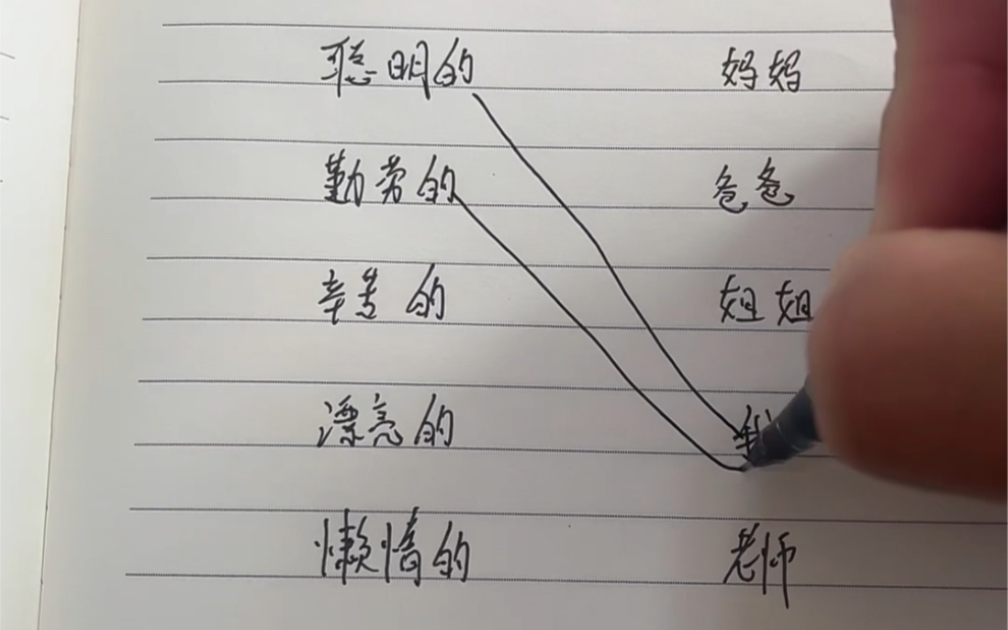 聪明的 妈妈
勤劳的 爸爸
辛苦的 姐姐
漂亮的 我
懒惰的 老师